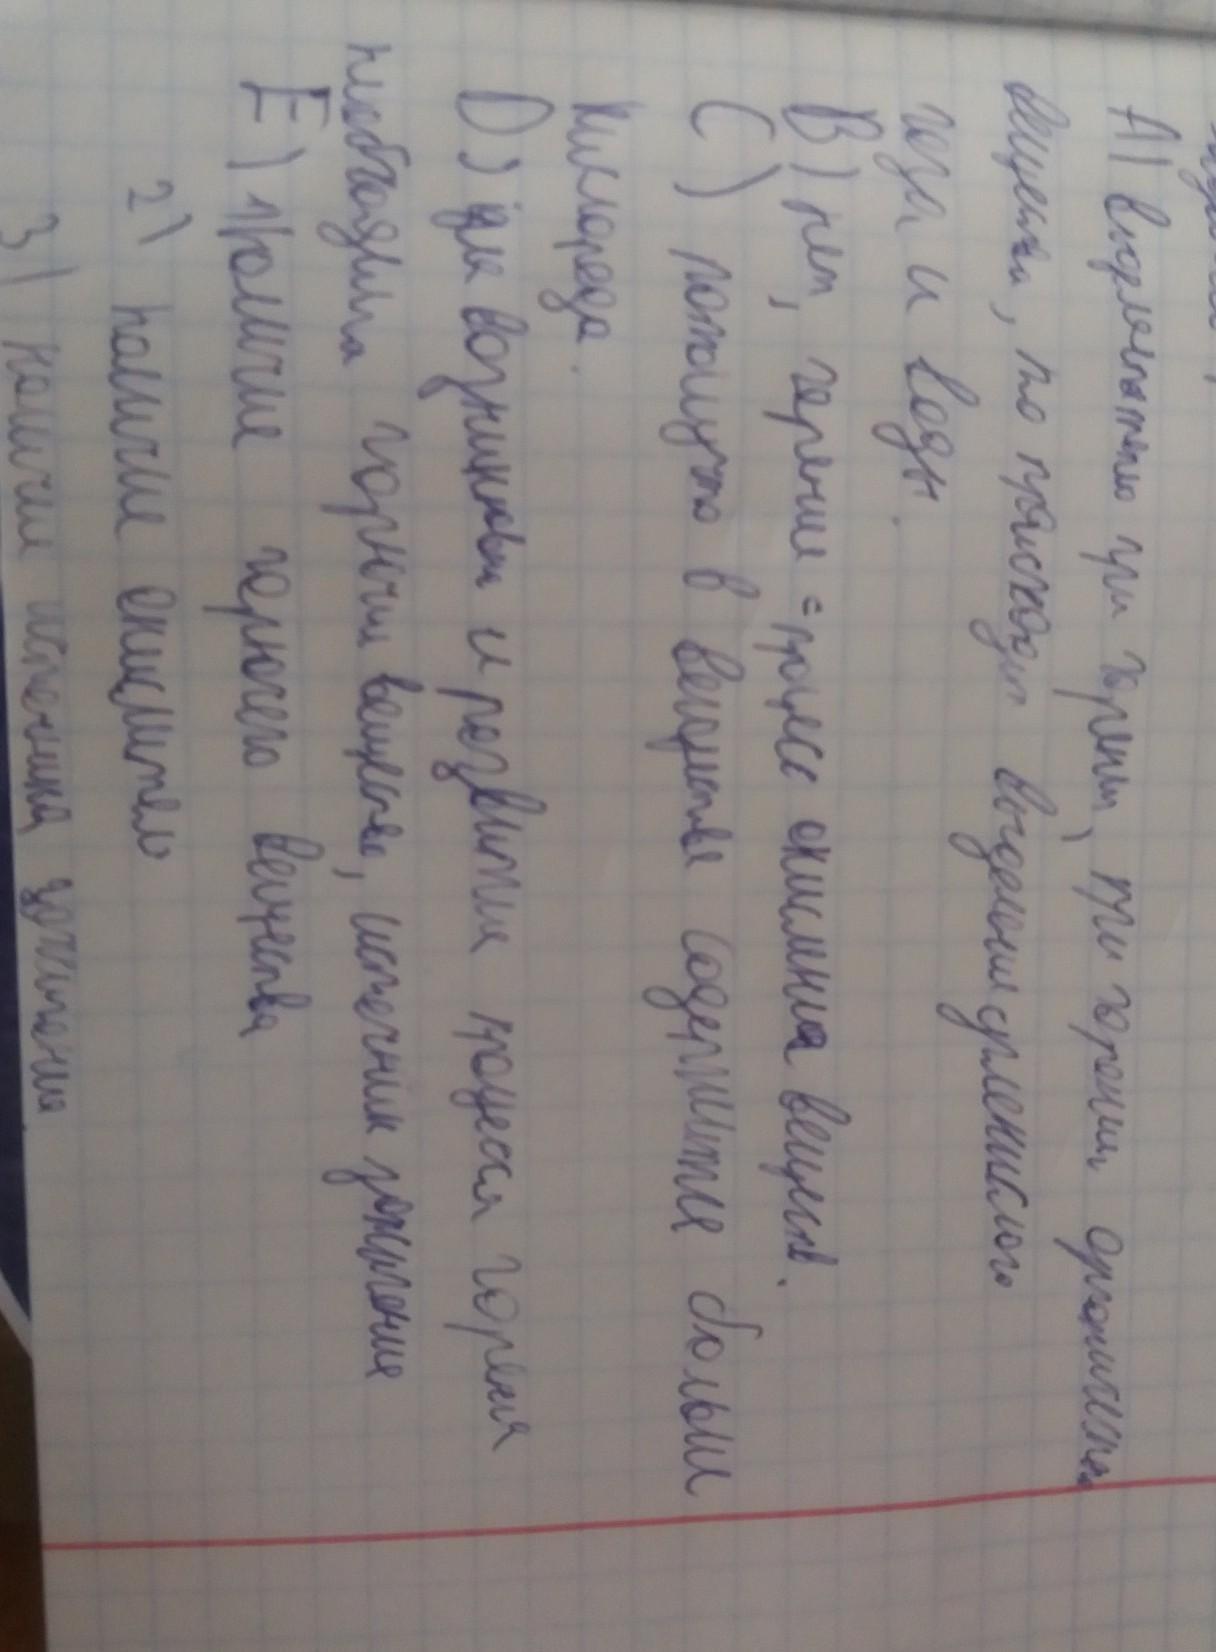 A) выделительно при горении, при горении органических
веществ, то происходит выделении углекислого
газа и воды.
B) нет, горение = процесс окисления веществ.
C) потому что в веществе содержите больше
кислорода.
D) для возникновен и развитие процесса горения
необходимо горючии вещества, источник зажигание
E) 1) наличие горючего вещества
2) наличие окислитель
3) наличии источника зажигания